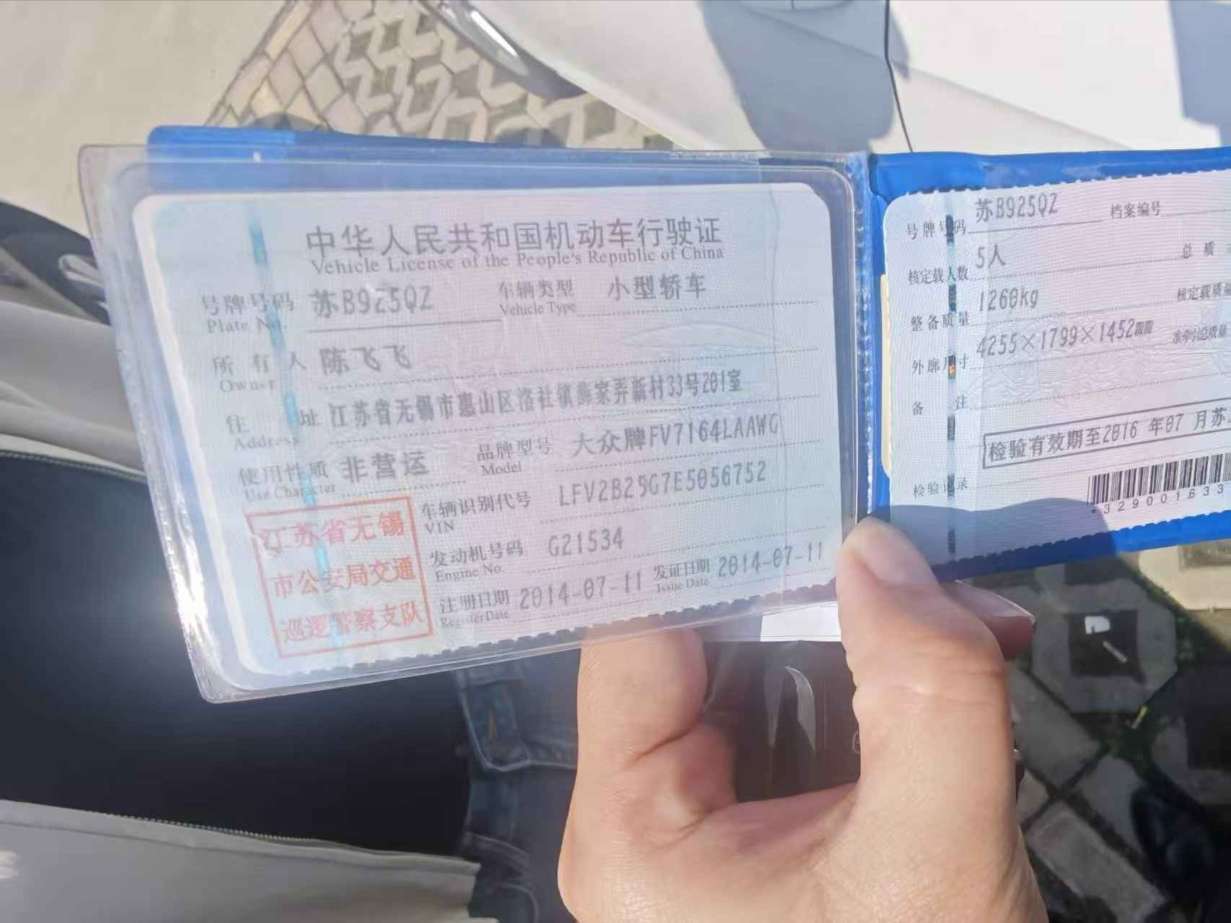 中华人民共和国机动车行驶证
Vehicle License of the People's Republic of China
号牌号码 苏B925QZ 车辆类型 小型轿车
Plate No. Vehicle Type
所有人 陈飞飞
Owner
住址 江苏省无锡市惠山区洛社镇 家弄新村33号201室
Address
使用性质 非营运 品牌型号 大众牌FV7164LAAWG
Use Character Model
车辆识别代号 LFV2B25G7E5056752
VIN
发动机号码 G21534
Engine No.
注册日期 2014-07-11 发证日期 2014-07-11
Register Date Issue Date
江苏省无锡
市公安局交通
巡逻警察支队
号牌号码 苏B925QZ 档案编号
核定载人数 5人 总质
整备质量 1260kg 核定载质量
外廓尺寸 4255×1799×1452
备注
检验有效期至2016年07月苏
检验记录
*329001633